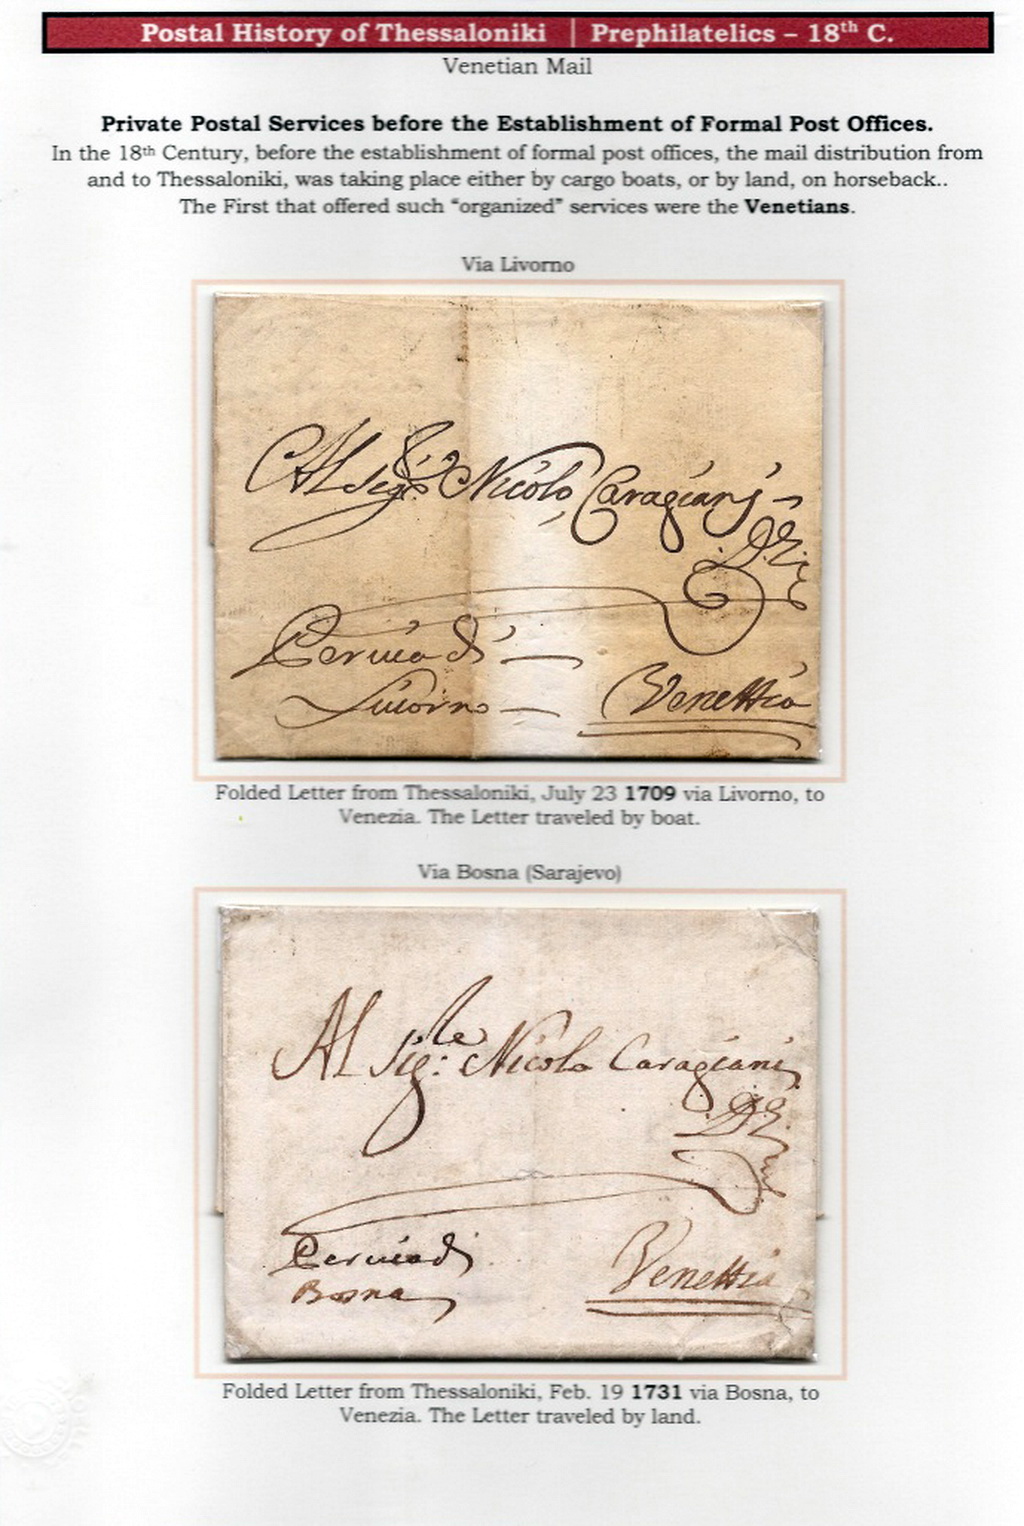 Postal History of Thessaloniki | Prephilatelics – 18th C.
Venetian Mail
Private Postal Services before the Establishment of Formal Post Offices.
In the 18th Century, before the establishment of formal post offices, the mail distribution from
and to Thessaloniki, was taking place either by cargo boats, or by land, on horseback..
The First that offered such “organized” services were the Venetians.
Via Livorno
Al Sig.re Nicolo Caragiani
Per via di
Livorno
Venettia
Folded Letter from Thessaloniki, July 23 1709 via Livorno, to
Venezia. The Letter traveled by boat.
Via Bosna (Sarajevo)
Al Sig:le Nicolo Caragiani
Per via di
Bosna
Venettia
Folded Letter from Thessaloniki, Feb. 19 1731 via Bosna, to
Venezia. The Letter traveled by land.